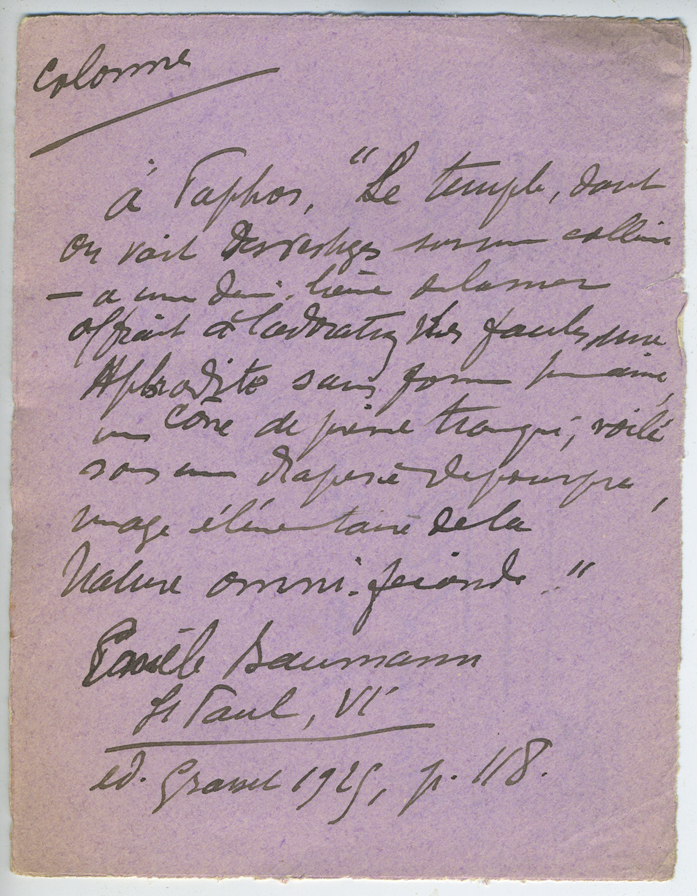 Colonne
à Paphos, "Le temple, dont
on voit des vestiges sur une colline
– a une demi-lieue de la mer
offrait à l'adoration des foules, une
Aphrodite sans forme humaine,
un cône de pierre tronqué, voilé
sous une draperie de pourpre,
image élémentaire de la
Nature omni-féconde."
Emile Baumann
St Paul, VI
ed. Grasset 1925, p. 118.